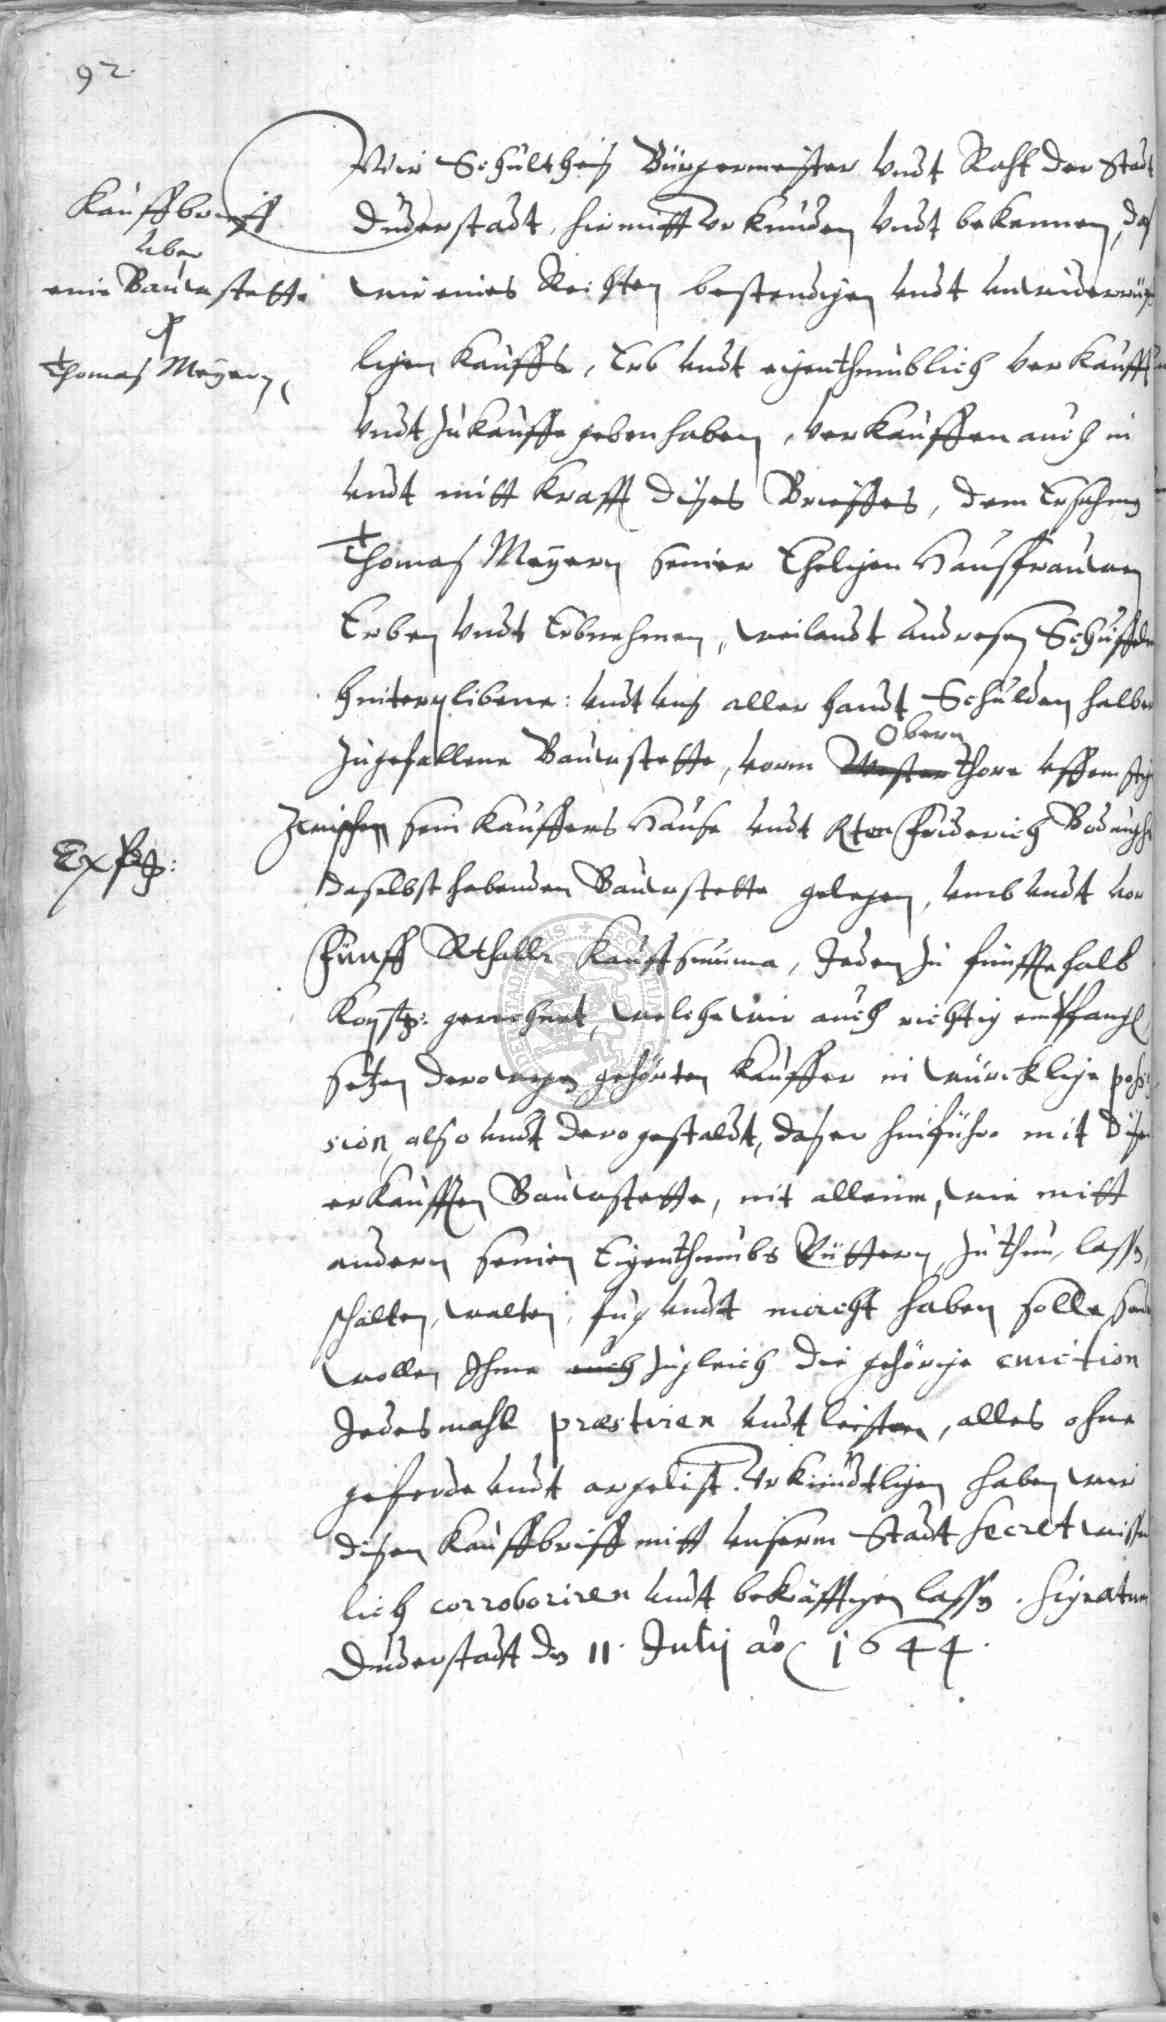 92
Kauffbrieff
uber
eine Bauwstette
p
Thomas Meÿern
Wir Schultheis Bürgermeister undt Raht der Stadt
Duderstadt, hiemitt Urkunden undt bekennen, das
wir eines Rechten bestendigen undt unwiderrüff
lichen Kauffs, Erb undt eigenthumblich verkaufft
undt zu kauffe geben haben, verkauffen auch in
undt mitt Krafft dises Brieffes, dem Ersahmen
Thomas Meÿern seiner Ehelichen Hausfrauwen
Erben undt Erbnehmen, weilandt Andresen
hinterplibene: undt uns aller handt Schulden halber
Obern
zugefallene Bauwstette, vorm Wester Thore uffem
zwischen sein Kauffers Hause undt Friderich
Exp:
daselbst habenden Bauwstette gelegen, umb undt vor
fünff Rthallr Kauffsumma, Jeden zu fünffthalb
gerechnet, welche wir auch richtig empfangen
setzen derowegen gehörten Kauffer in würckliche posses
sion, also undt dero gestaldt, das er hinführo mit diser
erkaufften Bauwstette, nit alleine, wie mitt
andern seinen Eigenthumbs Güttern, zu thun, lassen,
schalten, walten, fug undt macht haben solle,
wollen Ihme auch zugleich die gehörige eviction
Jedesmahl præstiren undt leisten, alles ohne
geferde undt argelist. Urkündtlichen haben wir
disen Kauffbriff mitt unserm Stadt Secret wissent
lich corroboriren undt bekräfftigen lassen. Signatum
Duderstadt den 11. Julij ao 1644.